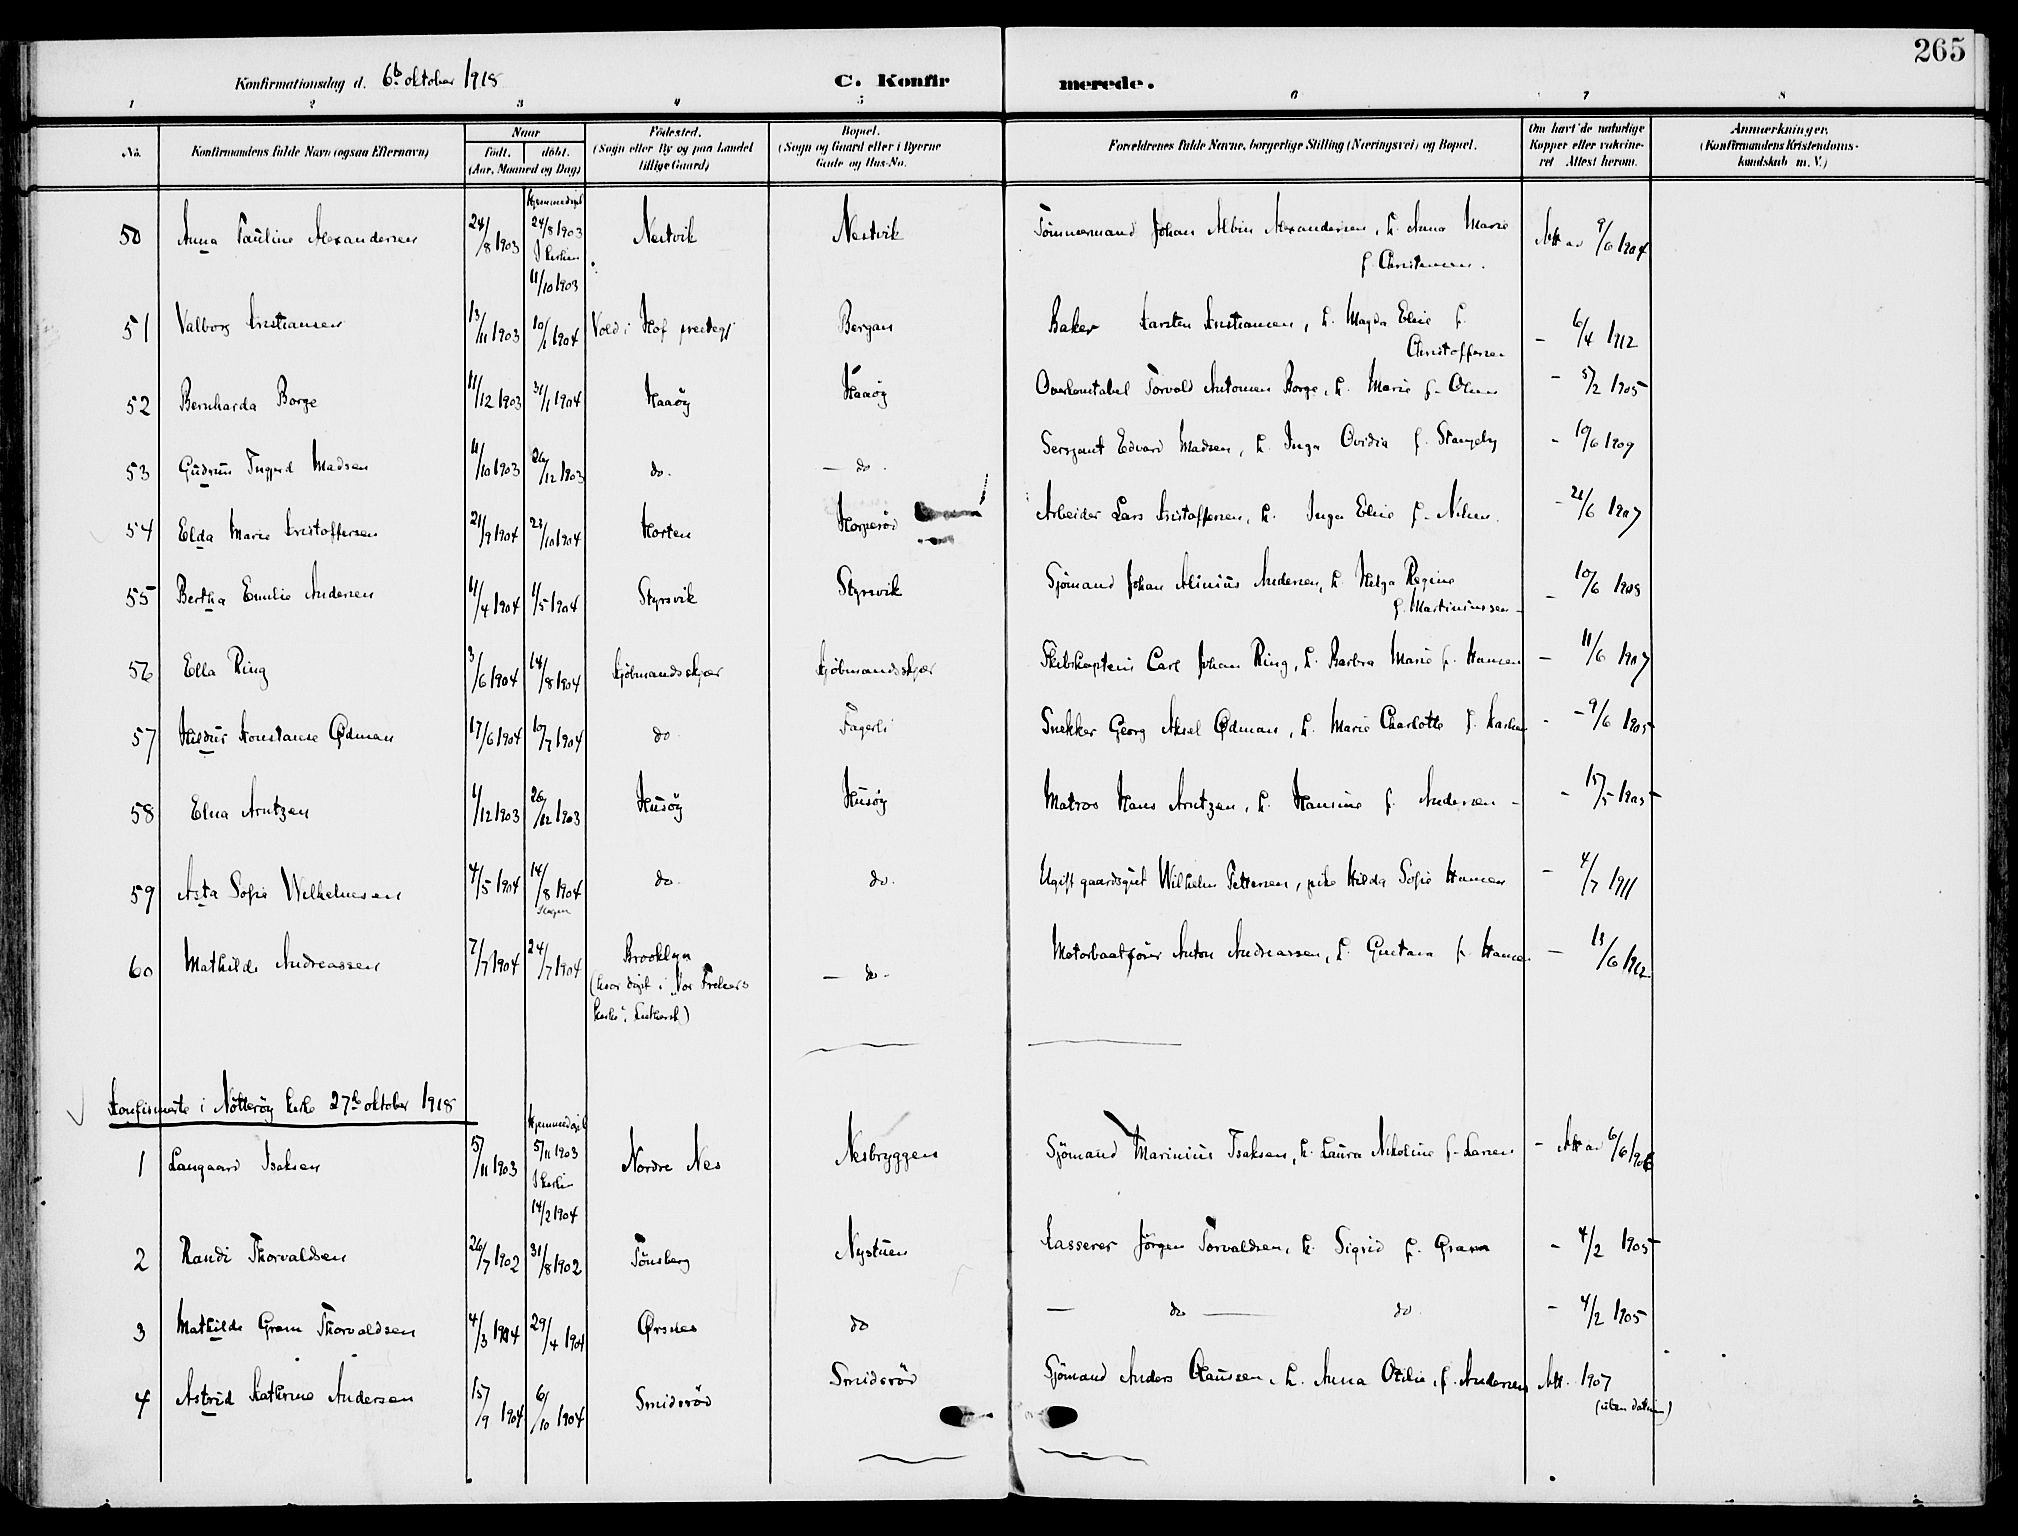 265
Konfirmationsdag d. 6te oktober 1918 C. Konfirmerede.
1 2 3 4 5 6 7 8
No. Konfirmandens fulde Navn (ogsaa Efternavn) Naar født. døbt. (Aar, Maaned og Dag) Fødested. (Sogn eller By og paa Landet tillige Gaard) Bopæl. (Sogn og Gaard eller i Byerne Gade og Hus-No. Forældrenes fulde Navne, borgerlige Stilling (Næringsvei) og Bopæl. Om havt de naturlige Kopper eller vakcineret Attest herom. Anmærkninger. (Konfirmandens Kristendomskundskab m. V.)
50 Anna Pauline Alexandersen 24/8 1903 Hjemmedøpt 24/8 1903 I kirken 11/10 1903 Nestvik Nestvik Tömmermand Johan Albin Alexandersen, h. Anna Marie f. Christensen. Att av 9/6 1904
51 Valborg Kristiansen 13/11 1903 10/1 1904 Vold i Hof prestegj Bergan Baker Karsten Kristiansen, h. Magda Elise f. Christoffersen - 6/4 1912
52 Bernharda Borge 11/12 1903 31/1 1904 Haaöy Haaöy Overkonstabel Torvald Antonsen Borge, h. Marie f. Olsen - 5/2 1905
53 Gudrun Ingjerd Madsen 11/10 1903 26/12 1903 do. - do. Sersjant Edvard Madsen, h. Inga Ovidia f. Stangeby - 10/6 1909
54 Elda Marie Kristoffersen 21/9 1904 23/10 1904 Horten Horperöd Arbeider Lars Kristoffersen, h. Inga Elise f. Nilsen. - 21/6 1907
55 Bertha Emilie Andersen 11/4 1904 1/5 1904 Styrsvik Styrsvik Sjömand Johan Alinius Andersen, h. Helga Regine f. Martiniussen - - 10/6 1908
56 Ella Ring 3/6 1904 14/8 1904 Kjöbmandsskjær Kjöbmandsskjær Skibskaptein Carl Johan Ring, h. Barbra Marie f. Hansen - 11/6 1907
57 Hildur Konstanse Ødman 17/6 1904 10/7 1904 do. Fagerli Snekker Georg Aksel Ødman, h. Marie Charlotte f. Karlsen - 9/6 1905
58 Elna Arntzen 1/12 1903 26/12 1903 Husöy Husöy Matros Hans Arntzen, h. Hansine f. Andersen - - 15/5 1905
59 Asta Sofie Wilhelmsen 4/5 1904 14/8 1904 do. do. Ugift gaardsgut Wilhelm Pettersen, pike Hilda Sofie Hansen - 4/7 1911
60 Mathilde Andreassen 7/7 1904 24/7 1904 Brooklyn (hvor döpt i "Vor Frelsers kirke", luthersk) - do - Motorbaatförer Anton Andreassen, h. Gustava f. Hansen - 13/6 1912
Konfirmerte i Nötteröy kirke 27de oktober 1918
1 Langaard Isaksen 5/11 1903 Hjemmedöpt 5/11 1903 I kirken 14/2 1904 Nordre Nes Nesbryggen Sjömand Marinius Isaksen, h. Laura Nikoline f. Larsen - Att av 6/6 1906
2 Randi Thorvaldsen 26/7 1902 31/8 1902 Tönsberg Nystuen Kasserer Jörgen Torvaldsen, h. Sigrid f. Gram - 4/2 1905
3 Mathilde Gram Thorvaldsen 4/3 1904 29/4 1904 Ørsnes do - do - do. - 4/2 1905
4 Astrid Kathrine Andersen 15/9 1904 6/10 1904 Smidsröd Smidsröd Sjömand Anders Clausen, h. Anna Otilie, f. Andersen Att. 1907 (uten datum)